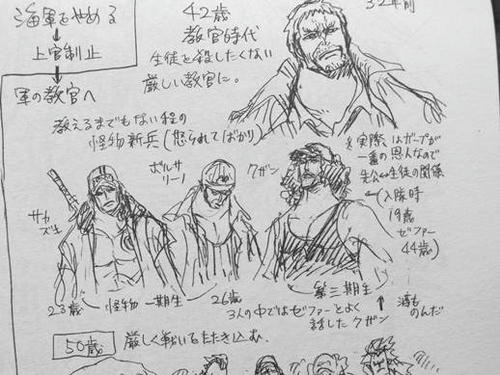 海軍をやめる
↓
上官制止
↓
軍の教官へ
42歳
教官時代
生徒を殺したくない
厳しい教官に。
32年前
教えるまでもない程の
怪物新兵(怒られてばかり)
※実際はガープが
一番の恩人なので
先公↔生徒の関係
入隊時
19歳
ゼファー
44歳)
サカズキ
ボルサリーノ
クザン
23歳
怪物一期生
26歳
第三期生
3人の中ではゼファーとよく
話したクザン
酒も
のんだ
50歳
厳しく戦いをたたき込む。